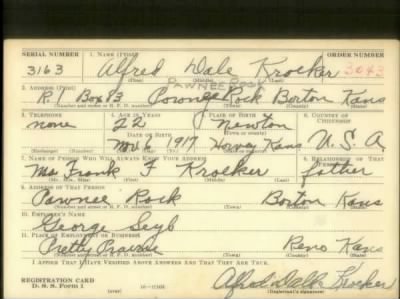 SERIAL NUMBER 1. NAME (Print) ORDER NUMBER
3163 Alfred Dale Krocker 3043
PAWNEE ROCK
2. ADDRESS (Print)
R. 1 Box 83 Pawnee Rock Barton Kans
3. TELEPHONE 4. AGE IN YEARS 5. PLACE OF BIRTH 6. COUNTRY OF CITIZENSHIP
none 22 Newton
DATE OF BIRTH (Town or county)
Nov 6 1917 Harvey Kans U. S. A.
7. NAME OF PERSON WHO WILL ALWAYS KNOW YOUR ADDRESS 8. RELATIONSHIP OF THAT PERSON
Mr Frank F Krocker father
9. ADDRESS OF THAT PERSON
Pawnee Rock Barton Kans
10. EMPLOYER'S NAME
George Seyb
11. PLACE OF EMPLOYMENT OR BUSINESS
Pretty Prairie Reno Kans
I AFFIRM THAT I HAVE VERIFIED ABOVE ANSWERS AND THAT THEY ARE TRUE.
REGISTRATION CARD
D. S. S. Form 1 (over) Alfred Dale Krocker
(Registrant's signature)